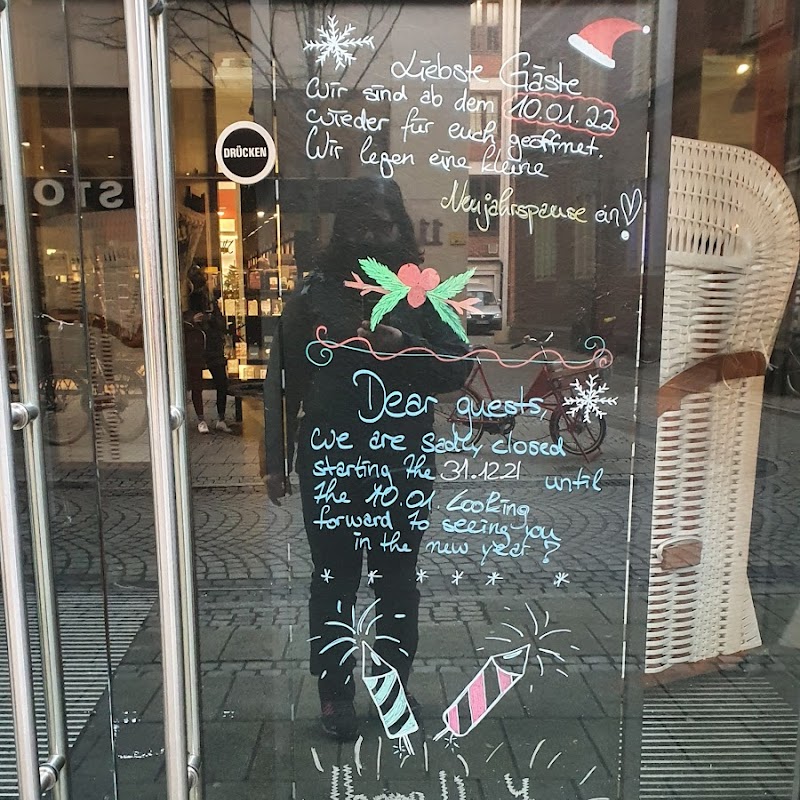 Liebste Gäste
Wir sind ab dem 10.01.22
wieder für euch geöffnet.
Wir legen eine kleine
Neujahrspause ein
DRÜCKEN
STO
Dear guests,
we are sadly closed
starting the 31.12.21 until
the 10.01. Looking
forward to seeing you
in the new year?